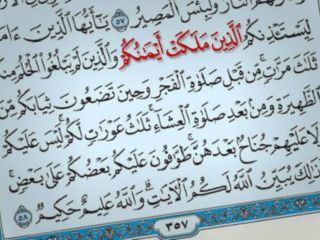 النار ولبئس المصير ٥٧ يأيها الذين ءامنوا
ليستـٔذنكم الذين ملكت أيمنكم والذين لم يبلغوا الحلم منكم
ثلث مرت من قبل صلوة الفجر وحين تضعون ثيابكم من
الظهيرة ومن بعد صلوة العشاء ثلث عورت لكم ليس عليكم
ولا عليهم جناح بعدهن طوفون عليكم بعضكم على بعض
كذلك يبين الله لكم الأيت والله عليم حكيم ٥٨
٣٥٧